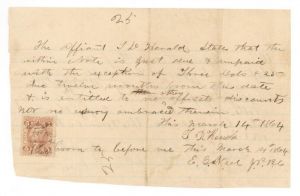 25
The affiant J D Herald States that the
within Note is Just due & unpaid
with the exception of Three dols & 25
due Twelve months from this date
& is entitled to no offsets discounts
no usury embraced therein
This March 14th 1864
Sworn to before me This March 14 1864